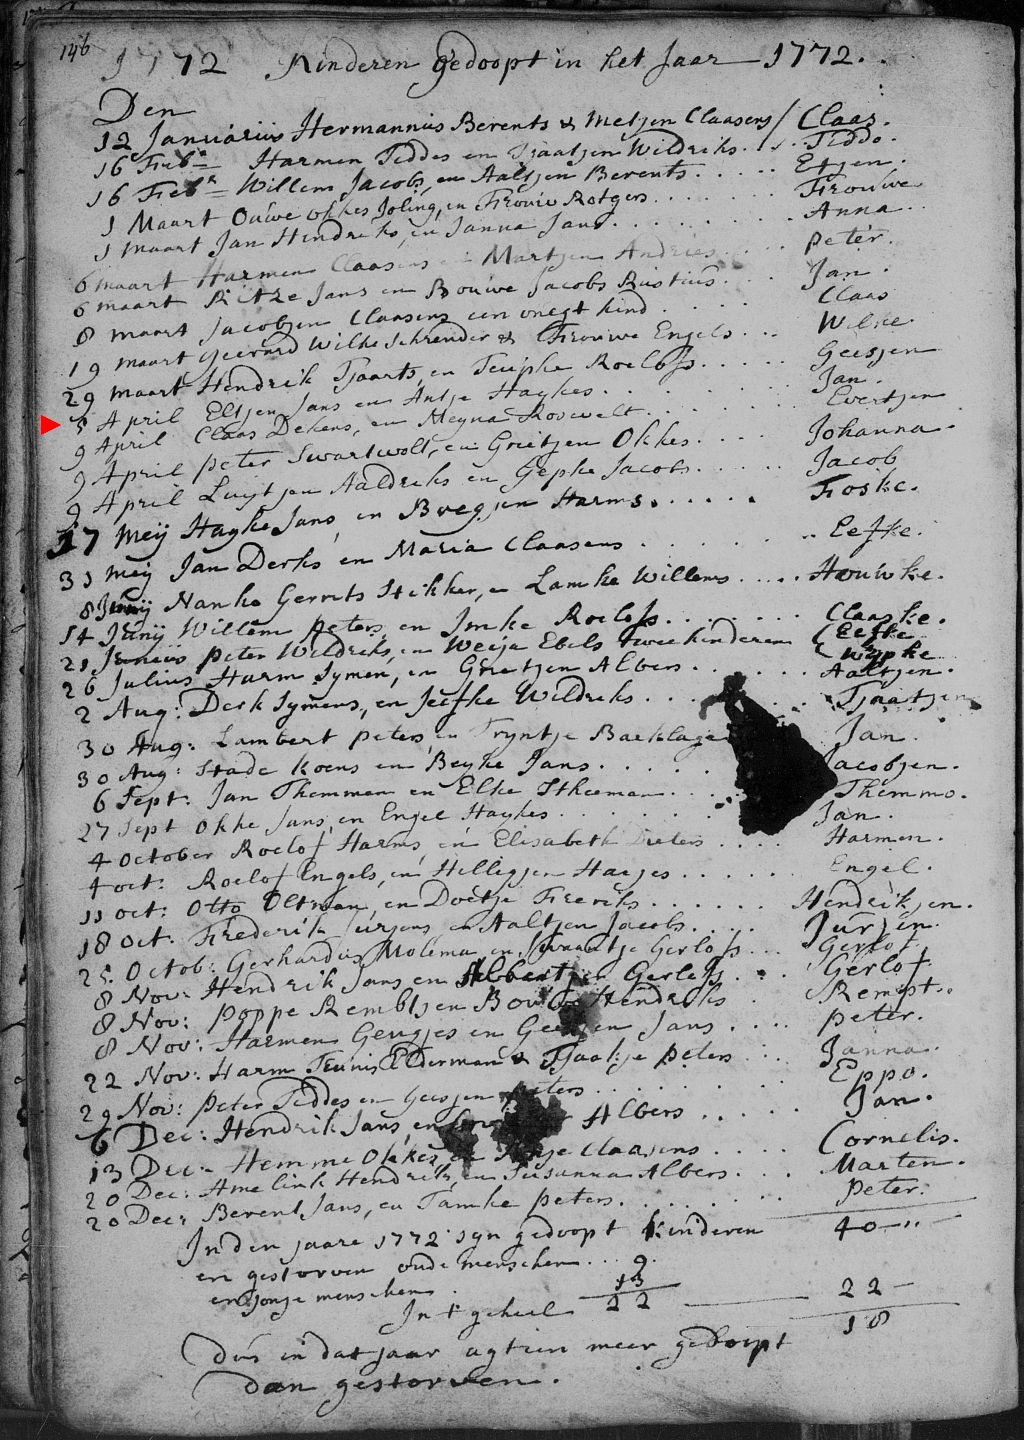 146
1772 Kinderen gedoopt in het Jaar 1772.
Den
12 Januarius Hermannus Berents & Metjen Claasens / Claas.
16 Febr= Harmen Teddes en Tjaatjen Wildriks. Teddo.
16 Febr= Willem Jacobs, en Aaltjen Berents. Etjen.
1 Maart Ouwe okkes Joling, en Frouw Rotgers. Frouwe
1 maart Jan Hendriks, en Janna Jans. Anna
6 maart Harmen Claasens en Martjen Andries peter.
6 maart Ritze Jans en Bouwe Jacobs Rustius Jan.
8 maart Jacobjen Claasens een onegt kind. Claas
19 maart Geerard Wilke Schrender & Frouwe Engels Wilke.
29 maart Hendrik Tjaarts, en Teupke Roelofs. Geesjen
5 April Eltjen Jans en Antje Haykes. Jan.
9 April Claas Dekens, en Meyna Rosevelt. Evertjen
9 April peter Swartwolt, en Grietjen Okkes. Johanna.
9 April Luytjen Aaldriks en Gepke Jacobs. Jacob
17 Meij Hayke Jans, en Bregjen Harms. Foske.
31 Meij Jan Derks en Maria Claasens. Eefke.
8 Junij Nanko Gerrits Stikker, en Lamke Willems. Houwke.
14 Junij Willem peters, en Imke Roelofs. Claaske.
21 Junius peter Wildriks, en Weija Ebels twee kinderen { Eefke
{ Wijpke
26 Julius Harm Symen, en Grietjen Albers. Aaltjen.
2 Aug: Derk Symens, en Jeefke Wildriks. Tjaatjen
30 Aug: Lambert peters, en Tryntje Backlage Jan.
30 Aug: Stade Koens en Beyke Jans. Jacobjen.
6 Sept: Jan Themmen en Elke Themmo.
27 Sept Okke Jans, en Engel Haykes. Jan.
4 October Roelof Harms, en Elisabeth Pieters. Harmen.
4 oct: Roelof Engels, en Hillegjen Harjes. Engel.
11 oct: Otto Oltman, en Doetje Freriks. Hendrikjen.
18 Oct: Frederik Jurjens, en Aaltjen Jacobs. Jurjen.
25. Octob: Gerhardus Molema en Swaantje Gerlofs Gerlof
8 Nov: Hendrik Jans en Albertjen Gerlofs. Gerlof.
8 Nov: poppe Rembtsen Hendriks Rempt.
8 Nov: Harmen Geugjes en Jans. peter.
22 Nov: Harm Teunis Elderman & Tjaatje peters Janna.
29 Nov: peter Teddes en Geesjen pieters. Eppo.
6 Dec: Hendrik Jans, en Albers Jan.
13 Dec: Hemme Okkes, Claasens Cornelis.
20 Dec: Amelink Hendriks, en Susanna Albers. Marten.
20 Dec: Berent Jans, en Tamke peters. peter.
In den jaare 1772 zyn gedoopt kinderen 40
en gestorven oude menschen 9.
en jonge menschen. 13
In't geheel 22 22
18
dus in dat jaar agtien meer gedoopt
dan gestorven.